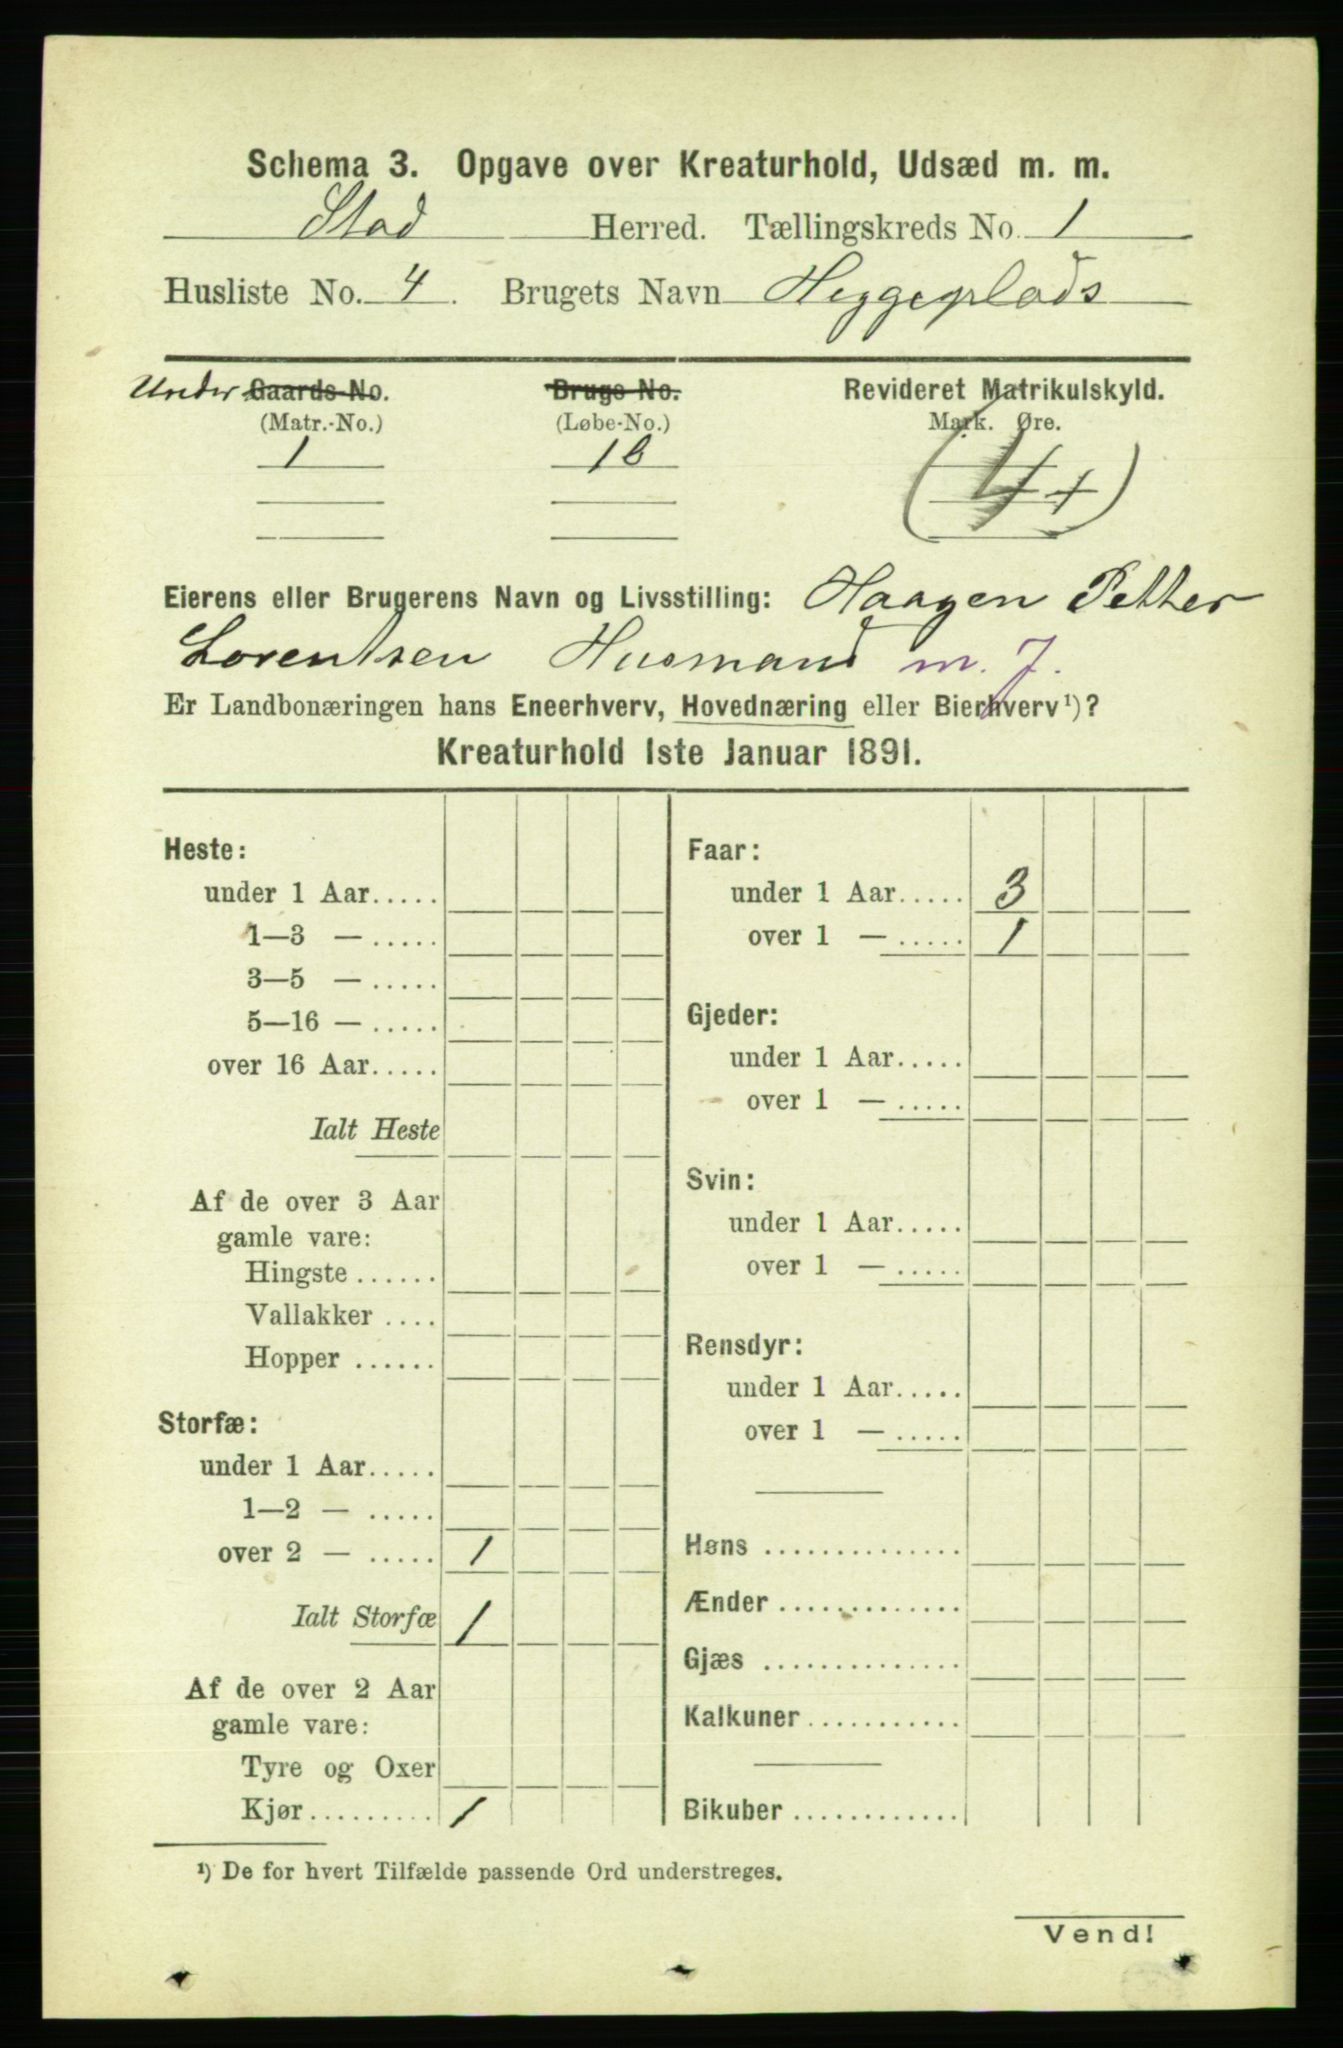 Schema 3. Opgave over Kreaturhold, Udsæd m. m.
Stod Herred. Tællingskreds No. 1
Husliste No. 4. Brugets Navn Heggeplads
Under Gaards-No. Brugs-No. Revideret Matrikulskyld.
(Matr.-No.) (Løbe-No.) Mark. Øre.
1 18
Eierens eller Brugerens Navn og Livsstilling: Haagen Petter
Lorentsen Husmand m. J.
Er Landbonæringen hans Eneerhverv, Hovednæring eller Bierhverv¹)?
Kreaturhold 1ste Januar 1891.
Heste:
under 1 Aar.....
1—3 — .....
3—5 — .....
5—16 — .....
over 16 Aar.....
Ialt Heste
Af de over 3 Aar
gamle vare:
Hingste ......
Vallakker ....
Hopper ......
Storfæ:
under 1 Aar.....
1—2 — .....
over 2 — ..... 1
Ialt Storfæ 1
Af de over 2 Aar
gamle vare:
Tyre og Oxer
Kjør......... 1
Faar:
under 1 Aar..... 3
over 1 — ..... 1
Gjeder:
under 1 Aar.....
over 1 — .....
Svin:
under 1 Aar.....
over 1 — .....
Rensdyr:
under 1 Aar.....
over 1 — .....
Høns ..............
Ænder .............
Gjæs ..............
Kalkuner...........
Bikuber ............
¹) De for hvert Tilfælde passende Ord understreges.
Vend!